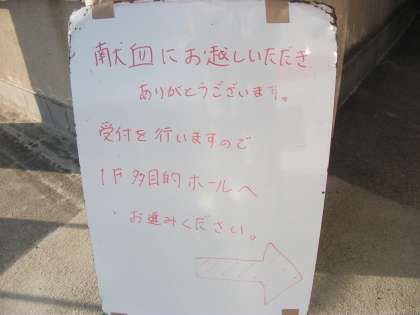 献血にお越しいただき
ありがとうございます。
受付を行いますので
1F多目的ホールへ
お進みください。